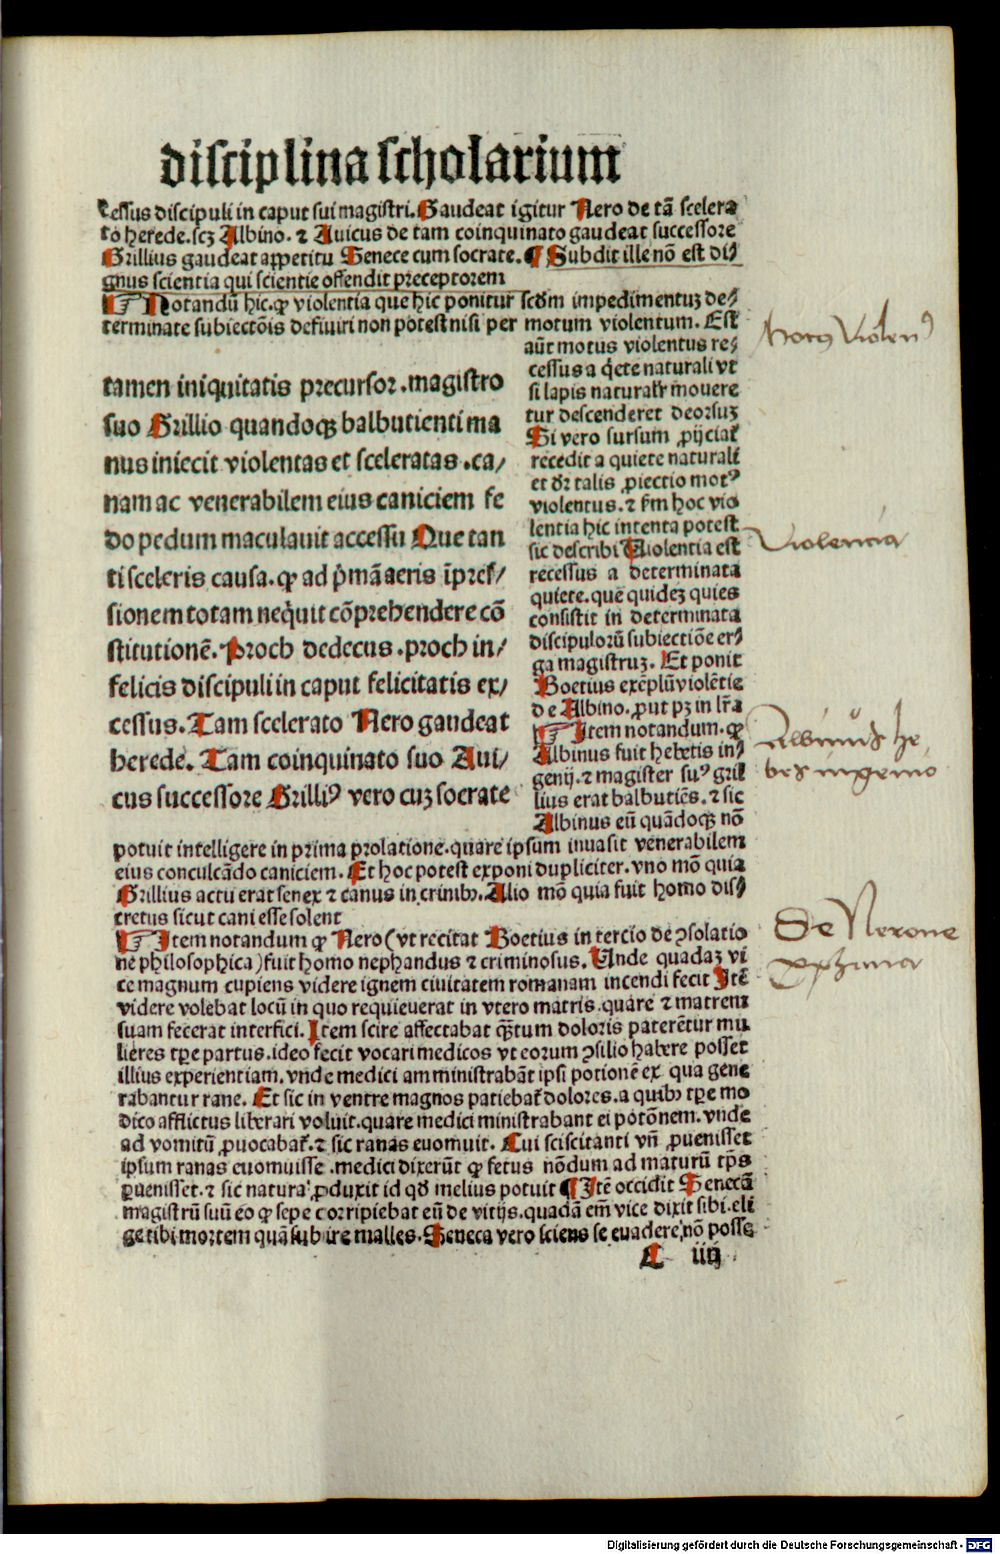 disciplina scholarium
cessus discipuli in caput sui magistri. Gaudeat igitur Nero de tã scelera
to herede. scꝫ Albino. ⁊ Auicus de tam coinquinato gaudeat successore
Grillius gaudeat appetitu Senece cum socrate. ¶ Subdit ille nõ est di⸗
gnus scientia qui scientie offendit preceptorem
☞ Notandũ hic. ꝙ violentia que hic ponitur scd̄m impedimentuꝫ de⸗
terminate subiectõis definiri non potest nisi per motum violentum. Est
aũt motus violentus re⸗
cessus a q̇ete naturali vt
si lapis naturalr̃ mouere
tur descenderet deorsuꝫ
Si vero sursum ꝓijciat᷑
recedit a quiete naturali
et dr̃ talis ꝓiectio motꝰ
violentus. ⁊ ẜm hoc vio
lentia hic intenta potest
sic describi Violentia est
recessus a determinata
quiete. que quideꝫ quies
consistit in determinata
discipulorũ subiectiõe er⸗
ga magistruꝫ. Et ponit
Boetius exẽplũ violẽtie
de Albino. ꝓut pꝫ in lr̃a
☞ Item notandum. ꝙ
Albinus fuit hebetis in⸗
genij. ⁊ magister suꝰ gril
lius erat balbutiẽs. ⁊ sic
Albinus eũ quãdoqꝫ nõ
tamen iniquitatis precursor. magistro
suo Grillio quandoqꝫ balbutienti ma
nus iniecit violentas et sceleratas. ca⸗
nam ac venerabilem eius caniciem fe
do pedum maculauit accessu Que tan
ti sceleris causa. ꝙ ad p̓mã aeris ĩpres⸗
sionem totam neq̇uit cõprehendere cõ
stitutionẽ. Proch dedecus. proch in⸗
felicis discipuli in caput felicitatis ex⸗
cessus. Tam scelerato Nero gaudeat
herede. Tam coinquinato suo Aui⸗
cus successore Grilliꝰ vero cuꝫ socrate
potuit intelligere in prima prolatione. quare ipsum inuasit venerabilem
eius conculcãdo caniciem. Et hoc potest exponi dupliciter. vno mõ quia
Grillius actu erat senex ⁊ canus in crinibꝫ. Alio mõ quia fuit homo dis⸗
cretus sicut cani esse solent
☞ Item notandum ꝙ Nero (vt recitat Boetius in tercio de ꝯsolatio
ne philosophica) fuit homo nephandus ⁊ criminosus. Unde quadaꝫ vi
ce magnum cupiens videre ignem ciuitatem romanam incendi fecit Itẽ
videre volebat locũ in quo requieuerat in vtero matris. quare ⁊ matrem
suam fecerat interfici. Item scire affectabat qꝫ̃tum doloris paterẽtur mu
lieres tp̃e partus. ideo fecit vocari medicos vt eorum ꝯsilio habere posset
illius experientiam. vnde medici amministrabãt ipsi potionẽ ex qua gene
rabantur rane. Et sic in ventre magnos patiebat᷑ dolores. a quibꝫ tp̃e mo
dico afflictus liberari voluit. quare medici ministrabant ei potõnem. vnde
ad vomitũ ꝓuocabat᷑. ⁊ sic ranas euomuit. Cui sciscitanti vñ ꝓuenisset
ipsum ranas euomuisse. medici dixerũt ꝙ fetus nõdum ad maturũ tp̃s
ꝑuenisset. ⁊ sic natura ꝓduxit id qd̄ melius potuit ¶ Itẽ occidit Senecã
magistrũ suũ eo ꝙ sepe corripiebat eũ de vitijs. quadã em̃ vice dixit sibi. eli
ge tibi mortem quã subire malles. Seneca vero sciens se euadere nõ posse
C iiij
Motꝰ Violenꝰ
Violencia
Albinus he
bes ingenio
De Nerone